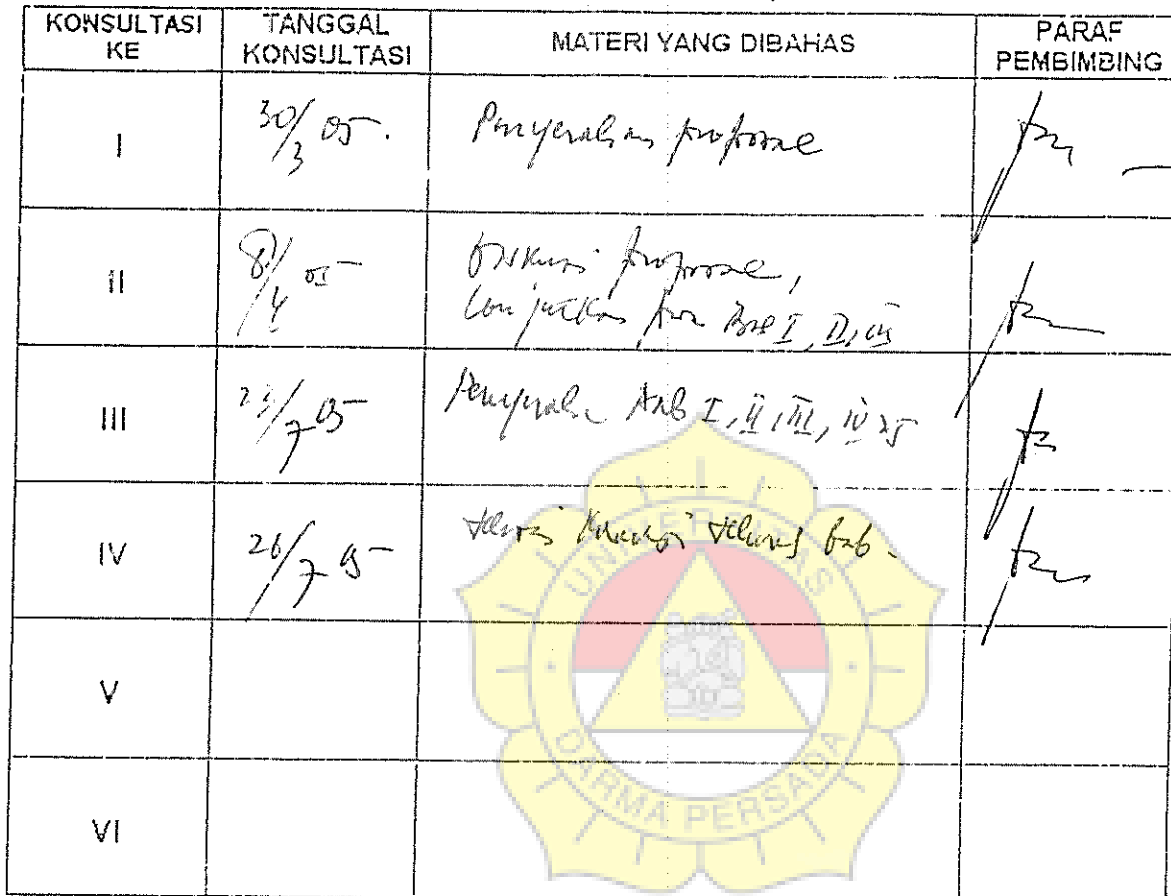 KONSULTASI KE
TANGGAL KONSULTASI
MATERI YANG DIBAHAS
PARAF PEMBIMBING
I
30/3 05.
Penyerahan proposal
II
8/4 05
Diskusi proposal,
Lanjutkan Bab I, II, III
III
/7 05
Penyerahan Bab I, II, III, IV
IV
26/7 05
bab
V
VI
UNIVERSITAS
DARMA PERSADA